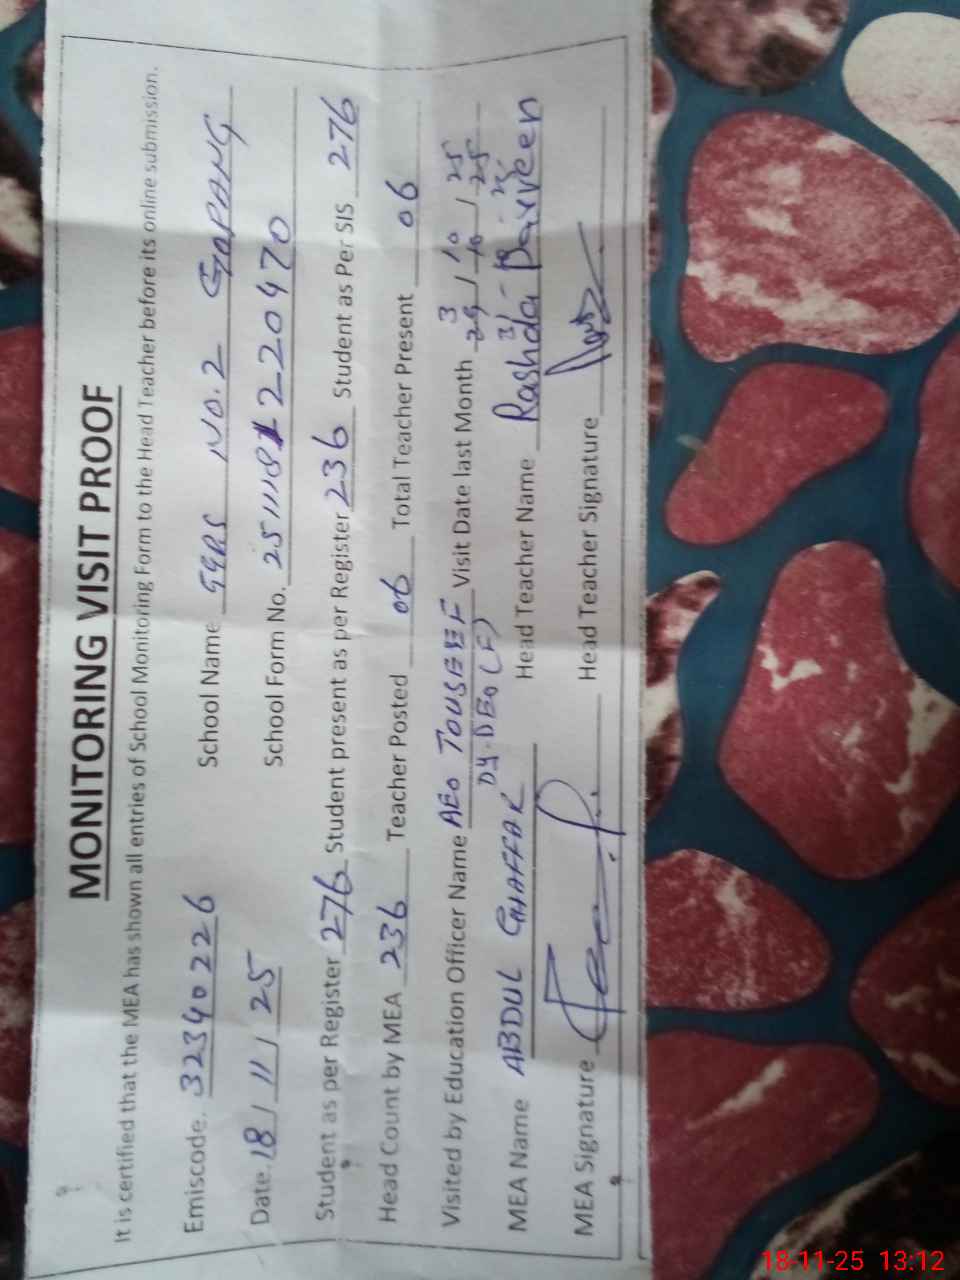 MONITORING VISIT PROOF
It is certified that the MEA has shown all entries of School Monitoring Form to the Head Teacher before its online submission.
Emiscode. 32340226 School Name GGRS NO.2 GOPANG
Date. 18 / 11 / 25 School Form No. 251118 220470
Student as per Register 276 Student present as per Register 236 Student as Per SIS 276
Head Count by MEA 236 Teacher Posted 06 Total Teacher Present 06
Visited by Education Officer Name AEO TOUSEEF Visit Date last Month 29 / 10 / 25
DY.DEO (F) 31 - 10 - 25
MEA Name ABDUL GHAFFAR Head Teacher Name Rashda Parveen
MEA Signature Head Teacher Signature
18-11-25 13:12